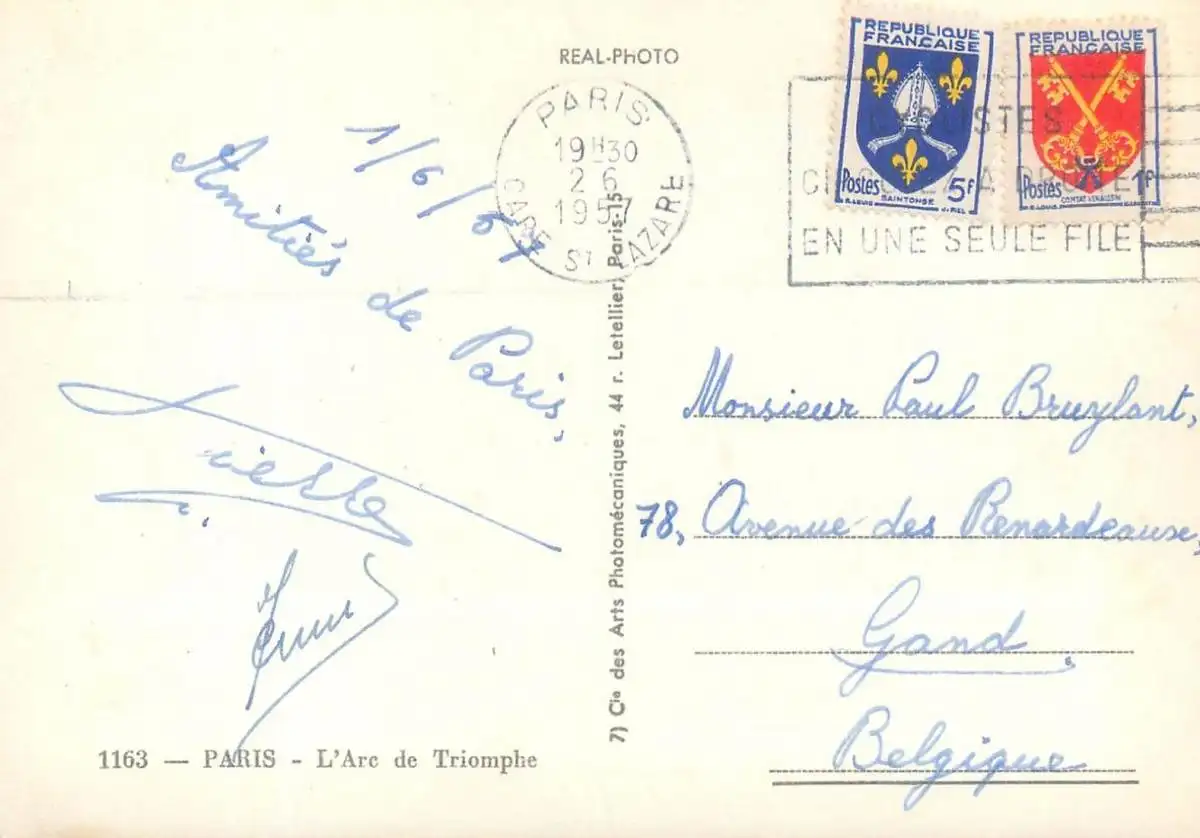 REAL-PHOTO
PARIS
19H30
2-6
1957
GARE ST LAZARE
CYCLISTES
EN UNE SEULE FILE
REPUBLIQUE
FRANÇAISE
Postes
5F
SAINTONGE
REPUBLIQUE
FRANÇAISE
Postes
1F
COMTAT VENAISSIN
1/6/57
Amitiés de Paris,
Monsieur Paul Bruylant,
78, Avenue des Renardeaux,
Gand
Belgique
7) Cie des Arts Photomécaniques, 44 r. Letellier, Paris-15
1163 — PARIS - L'Arc de Triomphe